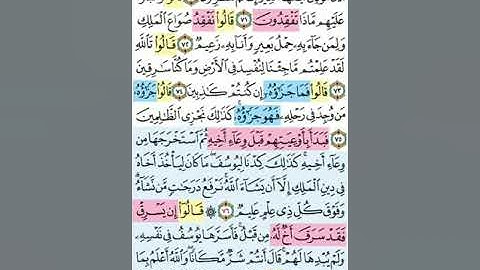 عَلَيْهِم مَّاذَا تَفْقِدُونَ ٧١ قَالُوا۟ نَفْقِدُ صُوَاعَ ٱلْمَلِكِ
وَلِمَن جَآءَ بِهِۦ حِمْلُ بَعِيرٍ وَأَنَا۠ بِهِۦ زَعِيمٌ ٧٢ قَالُوا۟ تَٱللَّهِ
لَقَدْ عَلِمْتُم مَّا جِئْنَا لِنُفْسِدَ فِى ٱلْأَرْضِ وَمَا كُنَّا سَٰرِقِينَ
٧٣ قَالُوا۟ فَمَا جَزَٰٓؤُهُۥٓ إِن كُنتُمْ كَٰذِبِينَ ٧٤ قَالُوا۟ جَزَٰٓؤُهُۥ
مَن وُجِدَ فِى رَحْلِهِۦ فَهُوَ جَزَٰٓؤُهُۥ كَذَٰلِكَ نَجْزِى ٱلظَّٰلِمِينَ
٧٥ فَبَدَأَ بِأَوْعِيَتِهِمْ قَبْلَ وِعَآءِ أَخِيهِ ثُمَّ ٱسْتَخْرَجَهَا مِن
وِعَآءِ أَخِيهِ كَذَٰلِكَ كِدْنَا لِيُوسُفَ مَا كَانَ لِيَأْخُذَ أَخَاهُ
فِى دِينِ ٱلْمَلِكِ إِلَّآ أَن يَشَآءَ ٱللَّهُ نَرْفَعُ دَرَجَٰتٍ مَّن نَّشَآءُ
وَفَوْقَ كُلِّ ذِى عِلْمٍ عَلِيمٌ ٧٦ قَالُوٓا۟ إِن يَسْرِقْ
فَقَدْ سَرَقَ أَخٌ لَّهُۥ مِن قَبْلُ فَأَسَرَّهَا يُوسُفُ فِى نَفْسِهِۦ
وَلَمْ يُبْدِهَا لَهُمْ قَالَ أَنتُمْ شَرٌّ مَّكَانًا وَٱللَّهُ أَعْلَمُ بِمَا